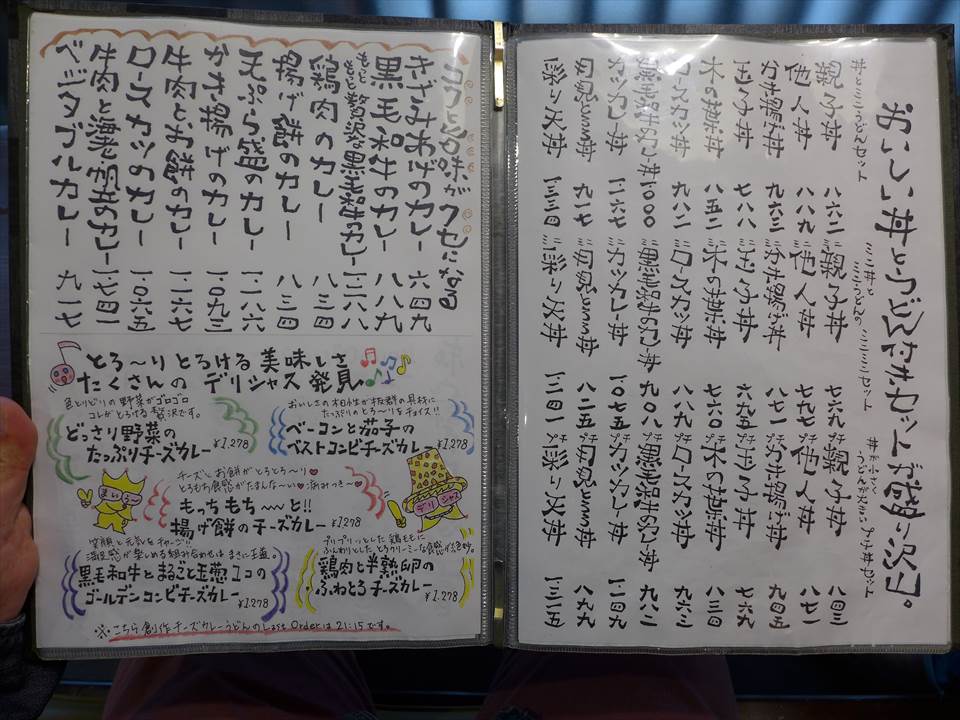 おいしい丼とうどん付きセットが盛り沢山。
丼とミニうどんセット
親子丼 八六二
他人丼 八八九
九六三
玉子丼 七八八
木の葉丼 八五二
ロースカツ丼 九八二
丼 一〇〇〇
カツカレー丼
月見とろろ丼 九一七
彩り天丼
ミニ丼と
ミニうどんの ミニミニセット
ミニ親子丼 七六九
ミニ他人丼 七九七
ミニ 八七一
ミニ玉子丼 六九五
ミニ木の葉丼 七六〇
ミニロースカツ丼 八八九
ミニ 丼 九〇八
ミニカツカレー丼 一〇七五
ミニ月見とろろ丼 八二五
ミニ彩り天丼
丼が小さく
うどんが大きい プチ丼セット
プチ親子丼 八四三
プチ他人丼 八七一
プチ 九四五
プチ玉子丼 七六九
プチ木の葉丼 八三四
プチロースカツ丼 九六三
プチ 丼 九八二
プチカツカレー丼
プチ月見とろろ丼 八九九
プチ彩り天丼
コクと旨味がクセになる
きざみあげのカレー 六四九
黒毛和牛のカレー 八八九
もっともっと贅沢な黒毛和牛のカレー
鶏肉のカレー 八三四
揚げ餅のカレー 八三四
天ぷら盛のカレー
かき揚げのカレー 一・〇九三
牛肉とお餅のカレー
ロースカツのカレー 一・〇六五
牛肉と海老と帆立のカレー 一・七四一
ベジタブルカレー 九一七
とろ〜りとろける美味しさ
たくさんの デリシャス発見
色とりどりの野菜がゴロゴロ
コレがとろける贅沢です。
どっさり野菜の
たっぷりチーズカレー ¥1,278
おいしさの相性が抜群の具材に
たっぷりのとろ〜りをチョイス!!
ベーコンと茄子の
ベストコンビチーズカレー ¥1,278
チーズとお餅がとろとろ〜り♥
とろもち食感がたまんな〜い♥病みつき〜♥
もっちもち〜っと!!
揚げ餅のチーズカレー ¥1,278
まいう〜
デリシャス
笑顔と元気をチャージ!!
満足感が楽しめる組み合わせは まさに王道。
黒毛和牛とまるごと玉葱1コの
ゴールデンコンビチーズカレー ¥1,278
プリプリッとした鶏ももに
ふんわりとしたとろクリーミーな食感が絶妙。
鶏肉と半熟卵の
ふわとろチーズカレー ¥1,278
※こちら創作チーズカレーうどんのLast Orderは21:15です。